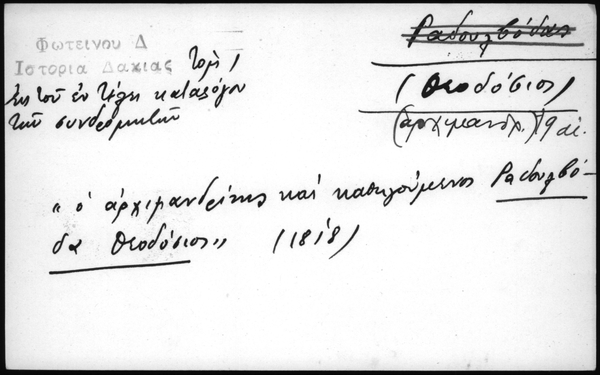 Φωτεινου Δ
Ιστορια Δακιας τομ 1
Εκ τοῦ ἐν τέλει καταλόγου
τῶν συνδρομητῶν
Ραδουλβόδας
(Θεοδόσιος)
(ἀρχιμανδρ.) 19 αἰ.
"ὁ ἀρχιμανδρίτης καὶ καθηγούμενος Ραδουλβό-
δα Θεοδόσιος" (1818)